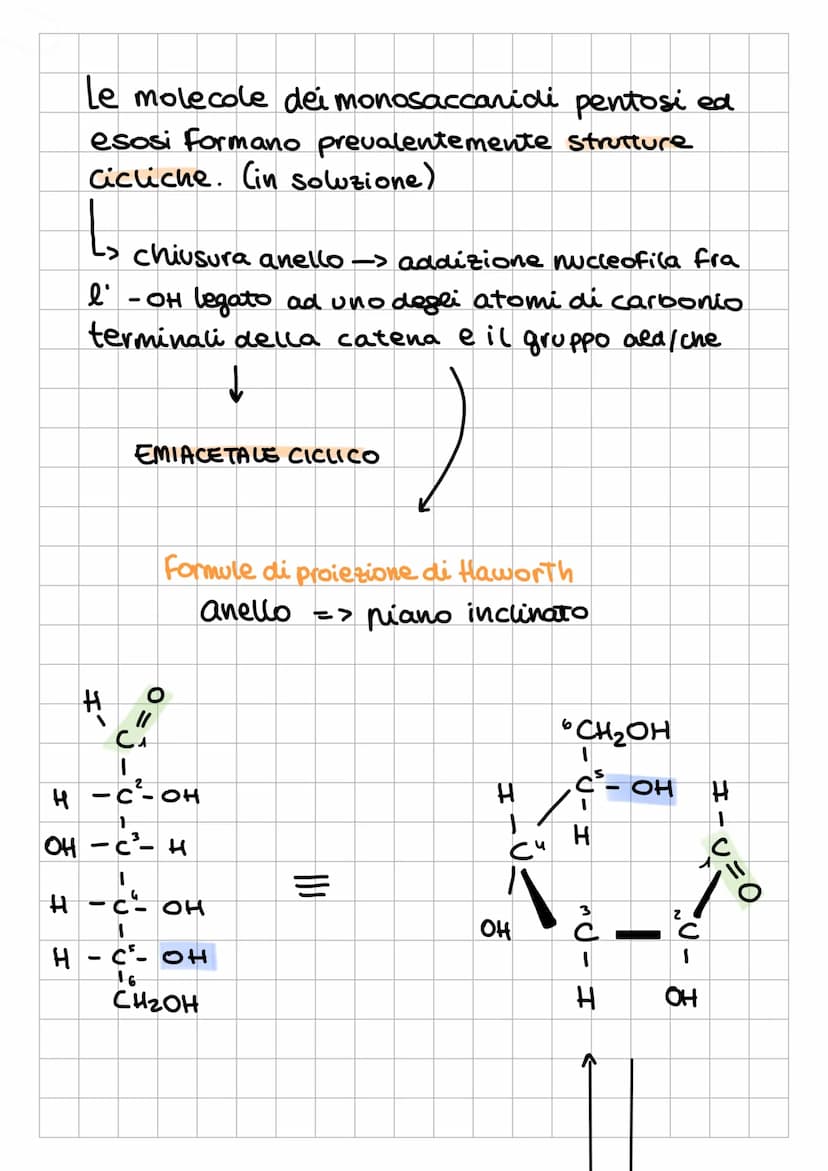 le molecole dei monosaccaridi pentosi ed
esosi formano prevalentemente strutture
cicliche. (in soluzione)
↳ chiusura anello —> addizione nucleofila fra
l' -OH legato ad uno degli atomi di carbonio
terminali della catena e il gruppo ald/che
↓
EMIACETALE CICLICO
Formule di proiezione di Haworth
anello => piano inclinato
H O
\ //
C1
|
H - C2 - OH
|
OH - C3 - H
|
H - C4 - OH
|
H - C5 - OH
|6
CH2OH
≡
6CH2OH
|
H C5 - OH H
| | |
C4 H C1 = O
OH 3C — 2C
| |
H OH